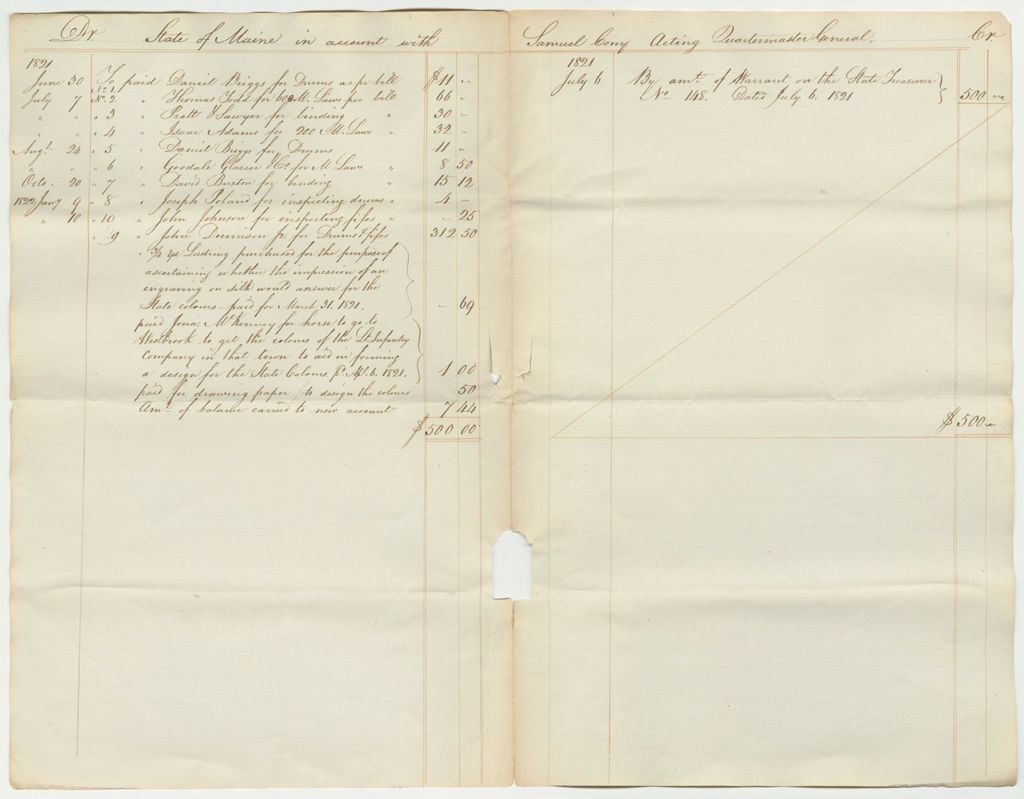 Dr State of Maine in account with
1821
June 30 To paid Daniel Briggs for Drums as pr bill No. 1 $11 "
July 7 No. 2 " Thomas Todd for 600 M. Laws per bill 66 "
" " " 3 " Pratt & Sawyer for binding " 30 "
" " " 4 " Isaac Adams for 200 M. Laws " 32 "
Augt. 24 " 5 " Daniel Briggs for Drums 11 "
" " " 6 " Goodale Glazier & Co. for M Laws " 8 50
Octo. 20 " 7 " David Buxton for binding " 15 12
1822 Jany 9 " 8 " Joseph Poland for inspecting drums " 4 "
" 10 " 10 " John Johnson for inspecting fifes " " 25
" 9 " John Dennison jr for Drums & fifes 312 50
" 3/4 yd Lustring purchased for the purpose of
ascertaining whether the impression of an
engraving on silk would answer for the
State colours paid for March 31. 1821. " 69
paid Jona. McKenney for horse to go to
Westbrook to get the colours of the Lt. Infantry
Company in that town to aid in forming
a design for the State Colours pd. Apl. 6. 1821. 1 00
paid for drawing paper to design the colours 50
Amt. of balance carried to new account 7 44
$500 00
Samuel Cony Acting Quartermaster General. Cr
1821
July 6 By amt. of Warrant on the State Treasurer
No. 148. Dated July 6. 1821 500 "
$500 "